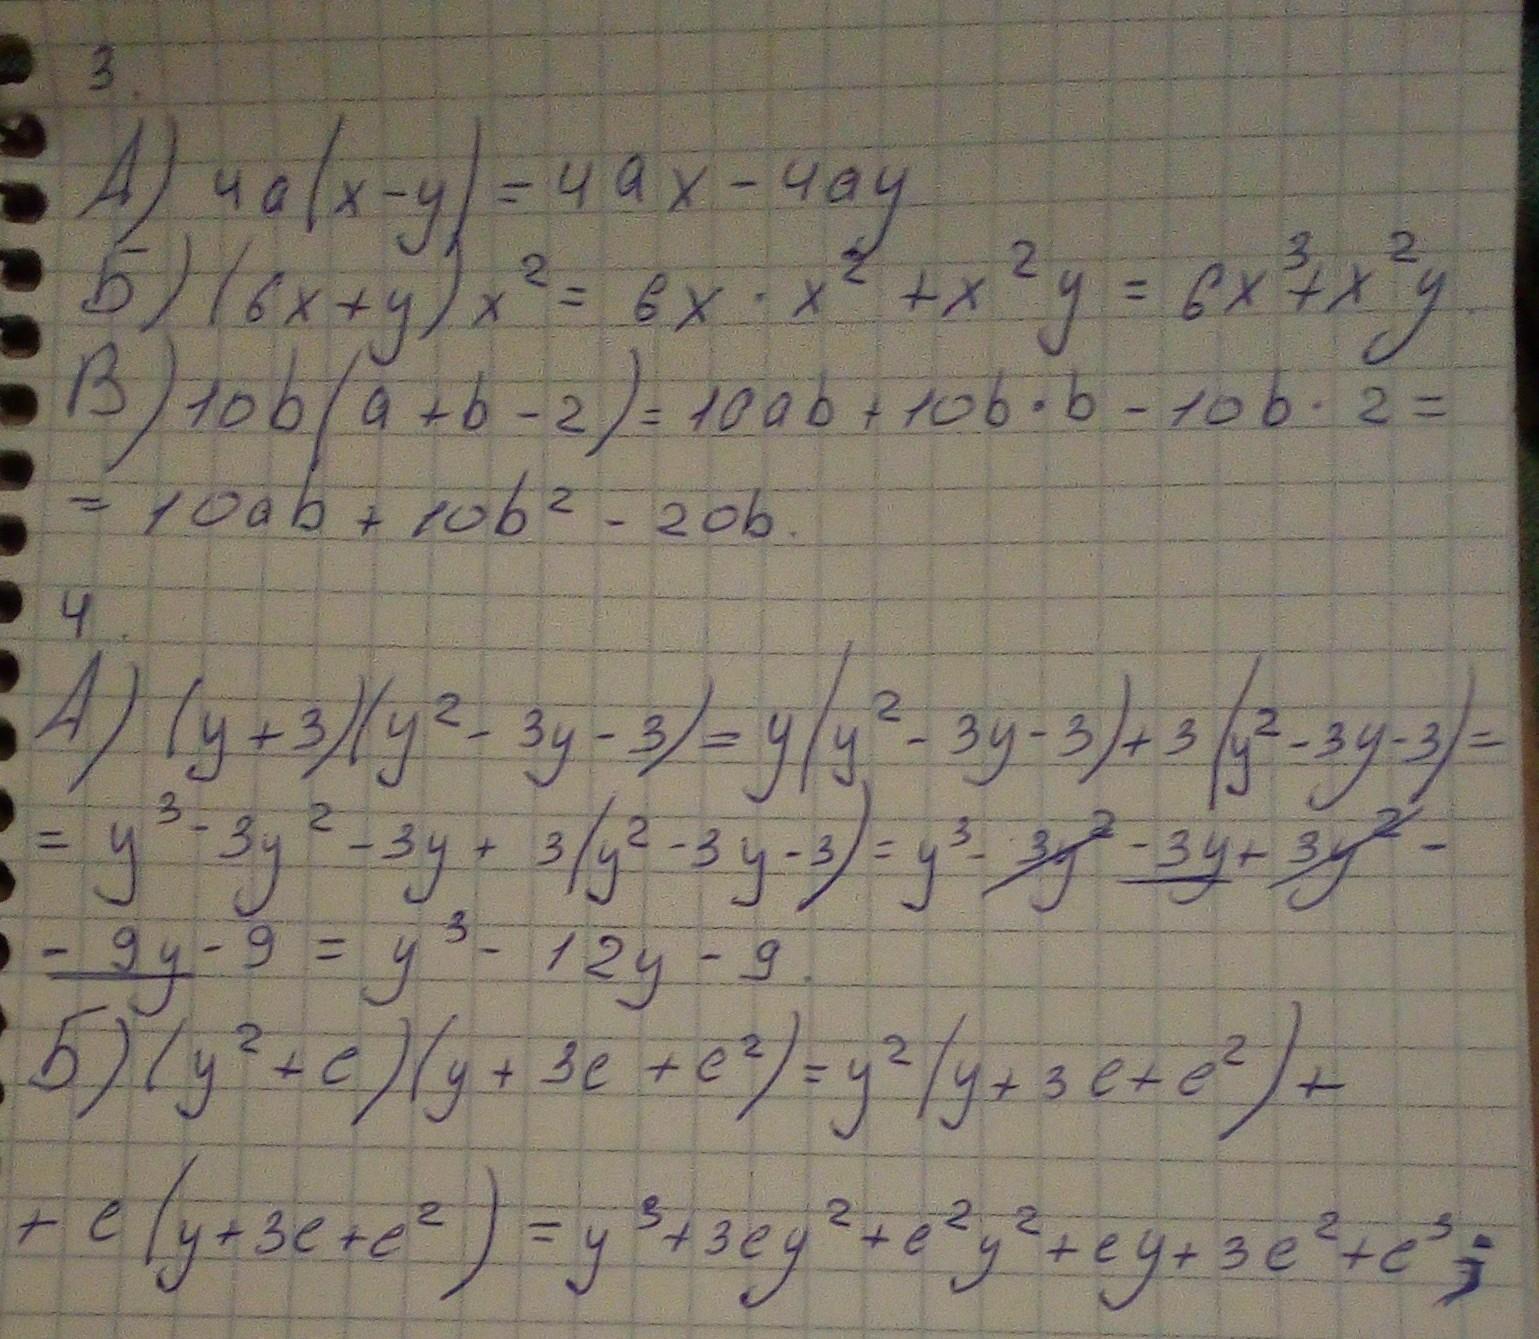 3.
А) 4a(x-y) = 4ax - 4ay
Б) (6x+y)x² = 6x · x² + x²y = 6x³+x²y.
В) 10b(a+b-2) = 10ab + 10b · b - 10b · 2 =
= 10ab + 10b² - 20b.
4.
А) (y+3)(y² - 3y - 3) = y(y² - 3y - 3) + 3(y² - 3y - 3) =
= y³ - 3y² - 3y + 3(y² - 3y - 3) = y³ - 3y² - 3y + 3y² -
- 9y - 9 = y³ - 12y - 9.
Б) (y² + c)(y + 3c + c²) = y²(y + 3c + c²) +
+ c(y + 3c + c²) = y³ + 3cy² + c²y² + cy + 3c² + c³;